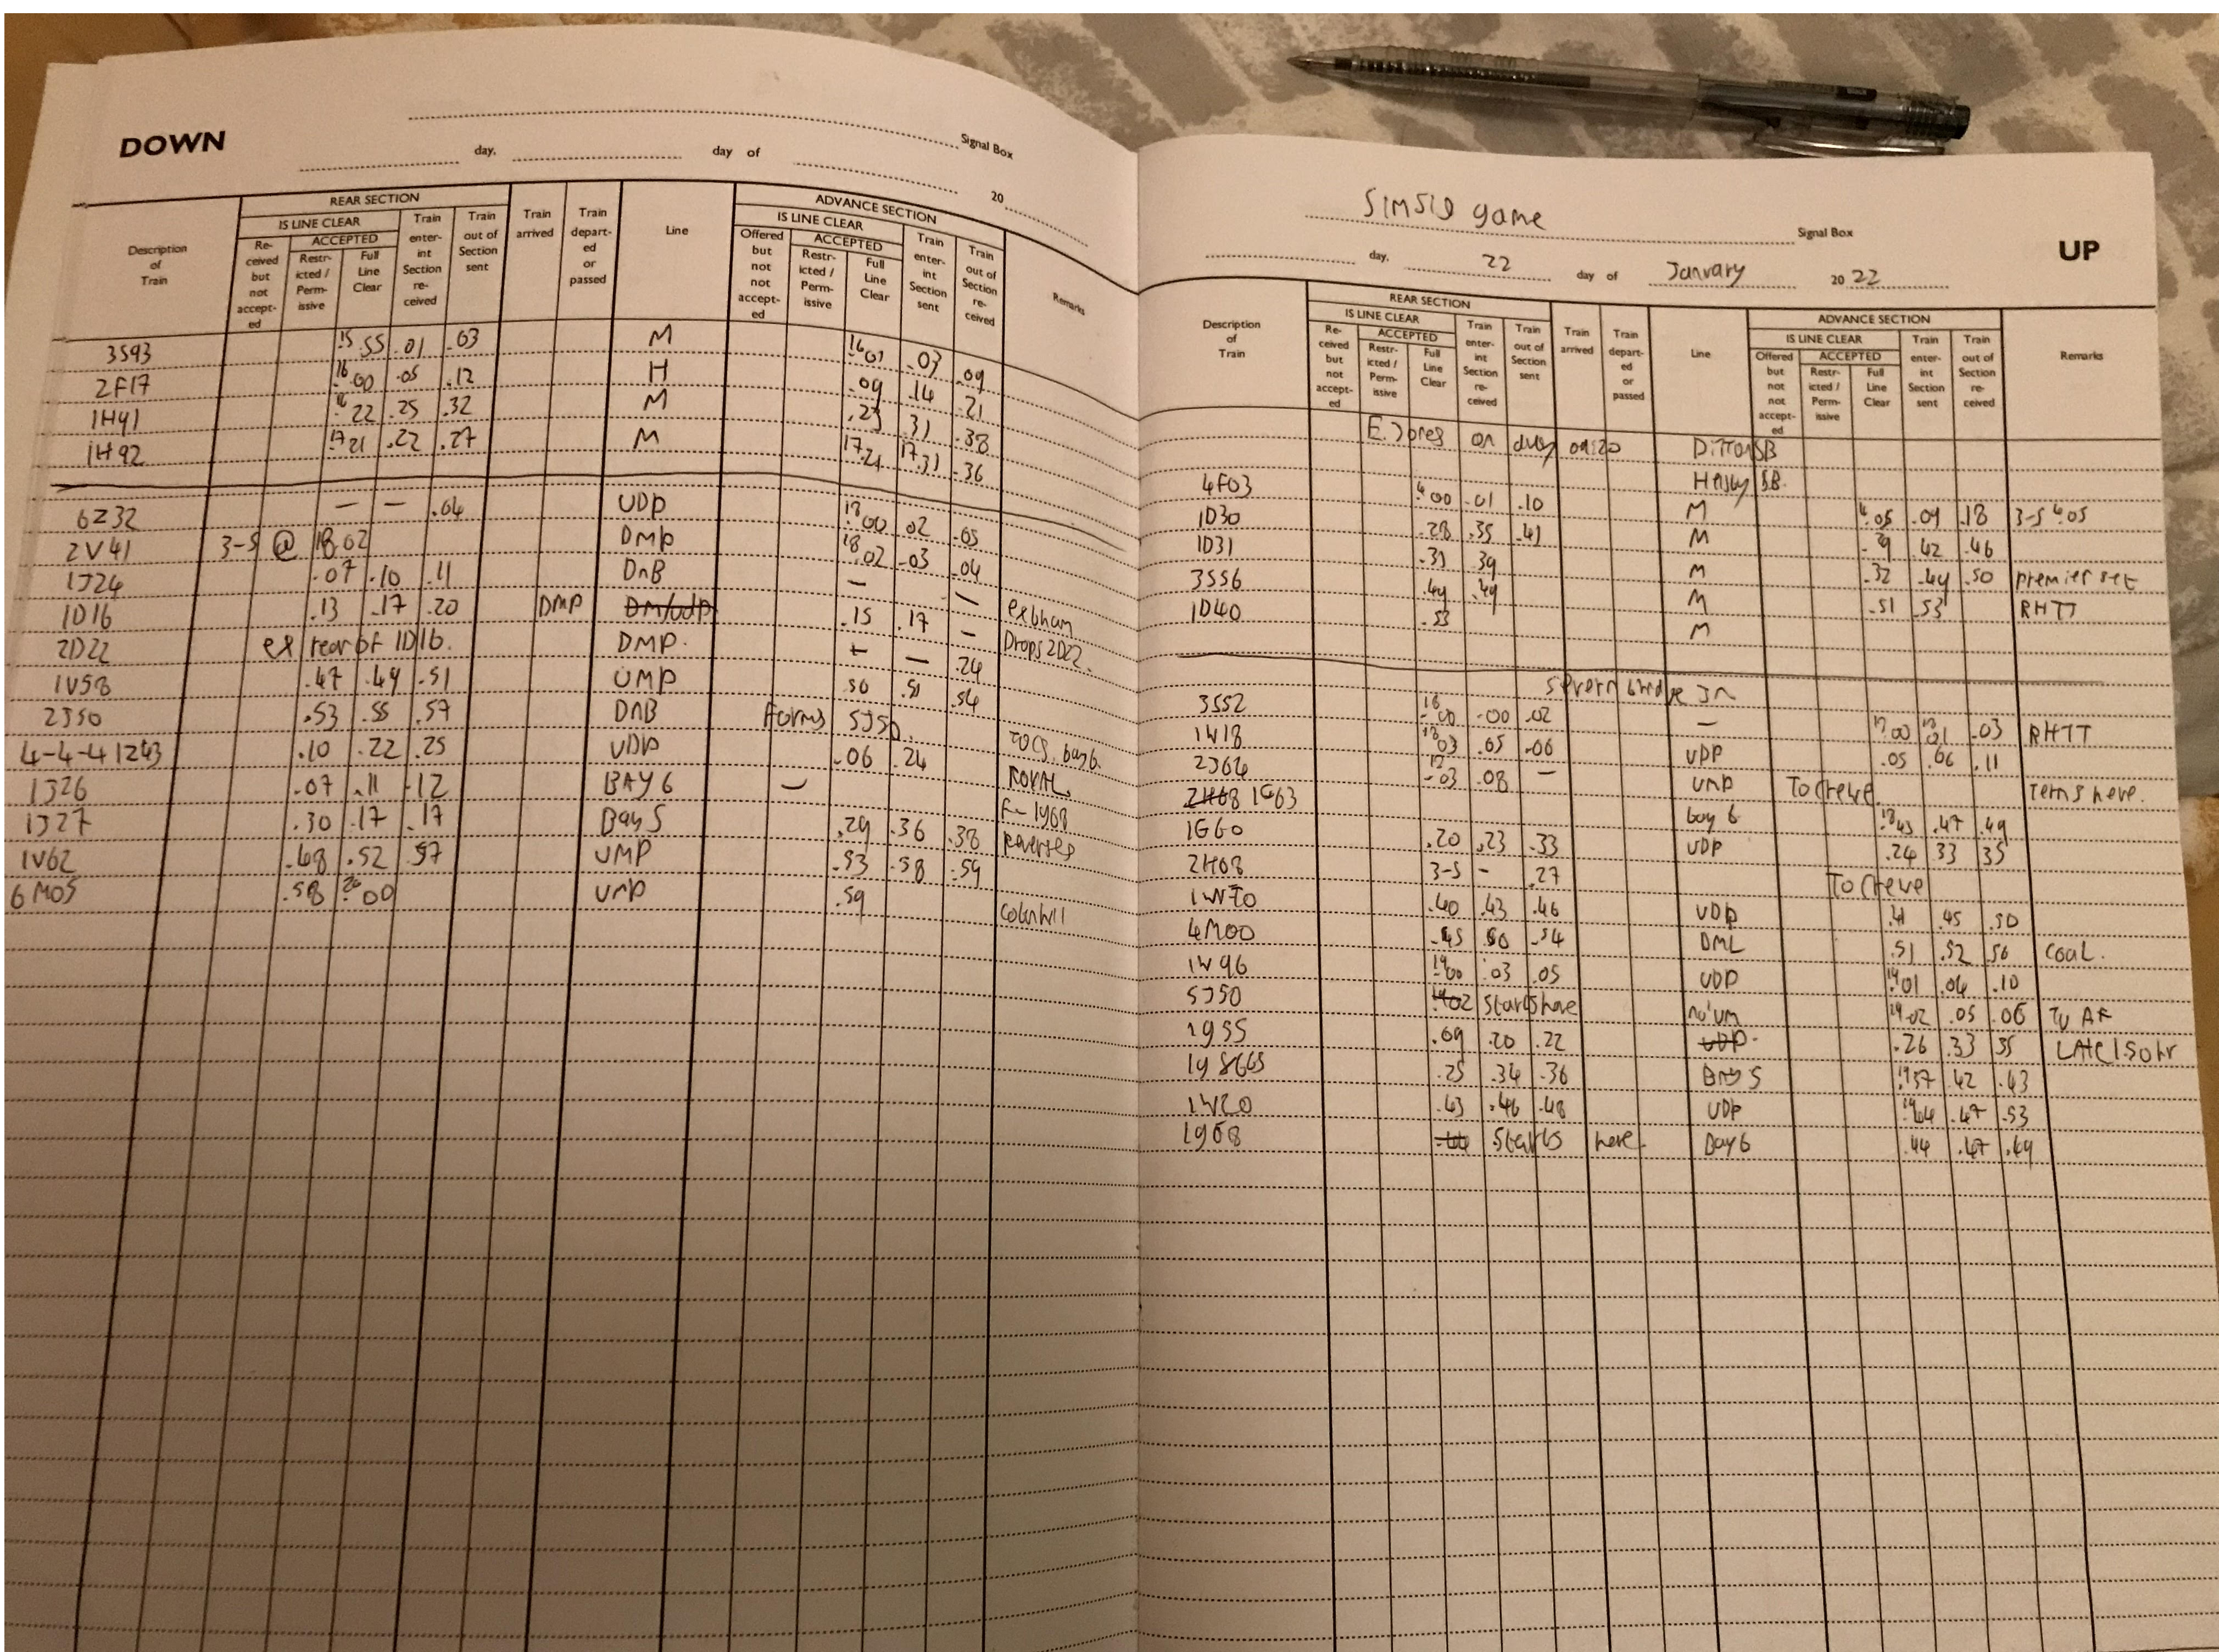 DOWN
Signal Box
day, day of 20
Description of Train
REAR SECTION
IS LINE CLEAR
Re-ceived but not accept-ed
ACCEPTED
Restr-icted / Perm-issive
Full Line Clear
Train enter-int Section re-ceived
Train out of Section sent
Train arrived
Train depart-ed or passed
Line
ADVANCE SECTION
IS LINE CLEAR
Offered but not not accept-ed
ACCEPTED
Restr-icted / Perm-issive
Full Line Clear
Train enter-int Section sent
Train out of Section re-ceived
Remarks
3S93 15 55 .01 .03 M 16 01 .03 .09
2F17 16 00 .05 .12 H .09 .14 .21
1H91 16 22 .25 .32 M .23 .31 .38
1H92 17 21 .22 .27 M 17.21 17.31 .36
6Z32 — — .04 UDP 18 00 02 .05
2V41 3-5 @ 18.02 DMP 18 02 .03 .04
1J24 .07 .10 .11 DNB — —
1D16 .13 .17 .20 DMP .15 .17 — ex bham
2D22 ex rear of 1D16. DMP. — — .24 Drops 2D22.
1V58 .47 .49 .51 UMP .50 .51 .54
2J50 .53 .55 .57 DNB Forms 5J50.
4-4-4 1Z43 .10 .22 .25 UDP .06 .24 ROYAL
1J26 .07 .11 .12 BAY 6 —
1J27 .30 .17 .17 Bay 5 .29 .36 .38 reverses
1V62 .48 .52 .57 UMP .53 .58 .59
6M05 .58 20 00 UMP .59
SIMSIG game Signal Box
UP
day, 22 day of January 20 22
Description of Train
REAR SECTION
IS LINE CLEAR
Re-ceived but not accept-ed
ACCEPTED
Restr-icted / Perm-issive
Full Line Clear
Train enter-int Section re-ceived
Train out of Section sent
Train arrived
Train depart-ed or passed
Line
ADVANCE SECTION
IS LINE CLEAR
Offered but not not accept-ed
ACCEPTED
Restr-icted / Perm-issive
Full Line Clear
Train enter-int Section sent
Train out of Section re-ceived
Remarks
on duty Ditton SB
4F03 4 00 .01 .10 M 4.05 .09 .18 3-5 4.05
1D30 .28 .35 .41 M .42 .46
1D31 .31 .39 M .32 .49 .50 premier set
3S56 .49 .49 M .51 .53 RHTT
1D40 .53 M
Severn bridge Jn
3S52 18 00 .00 .02 — .03 RHTT
1W18 18 03 .05 .06 UDP .05 .06 .11
2J64 .03 .08 — UMP To Crewe. Terms here.
1G63 bay 6 18 43 .47 .49
1G60 .20 .23 .33 UDP .24 33 35
2H08 3-5 - .27 To Crewe
1W70 .40 .43 .46 UDP .41 .45 .50
4M00 .45 50 .54 DML .51 .52 56 COAL.
1W96 19 00 .03 .05 UDP 19 01 .04 .10
5J50 starts here 19.02 .05 .06
1G55 .09 .20 .22 UDP. .26 .33 35 LATE 1.50hr
.25 .34 .36 Bay 5 19 37 .42 .43
1W20 .43 .46 .48 UDP .47 .53
starts here Bay 6 .44 .47 .49